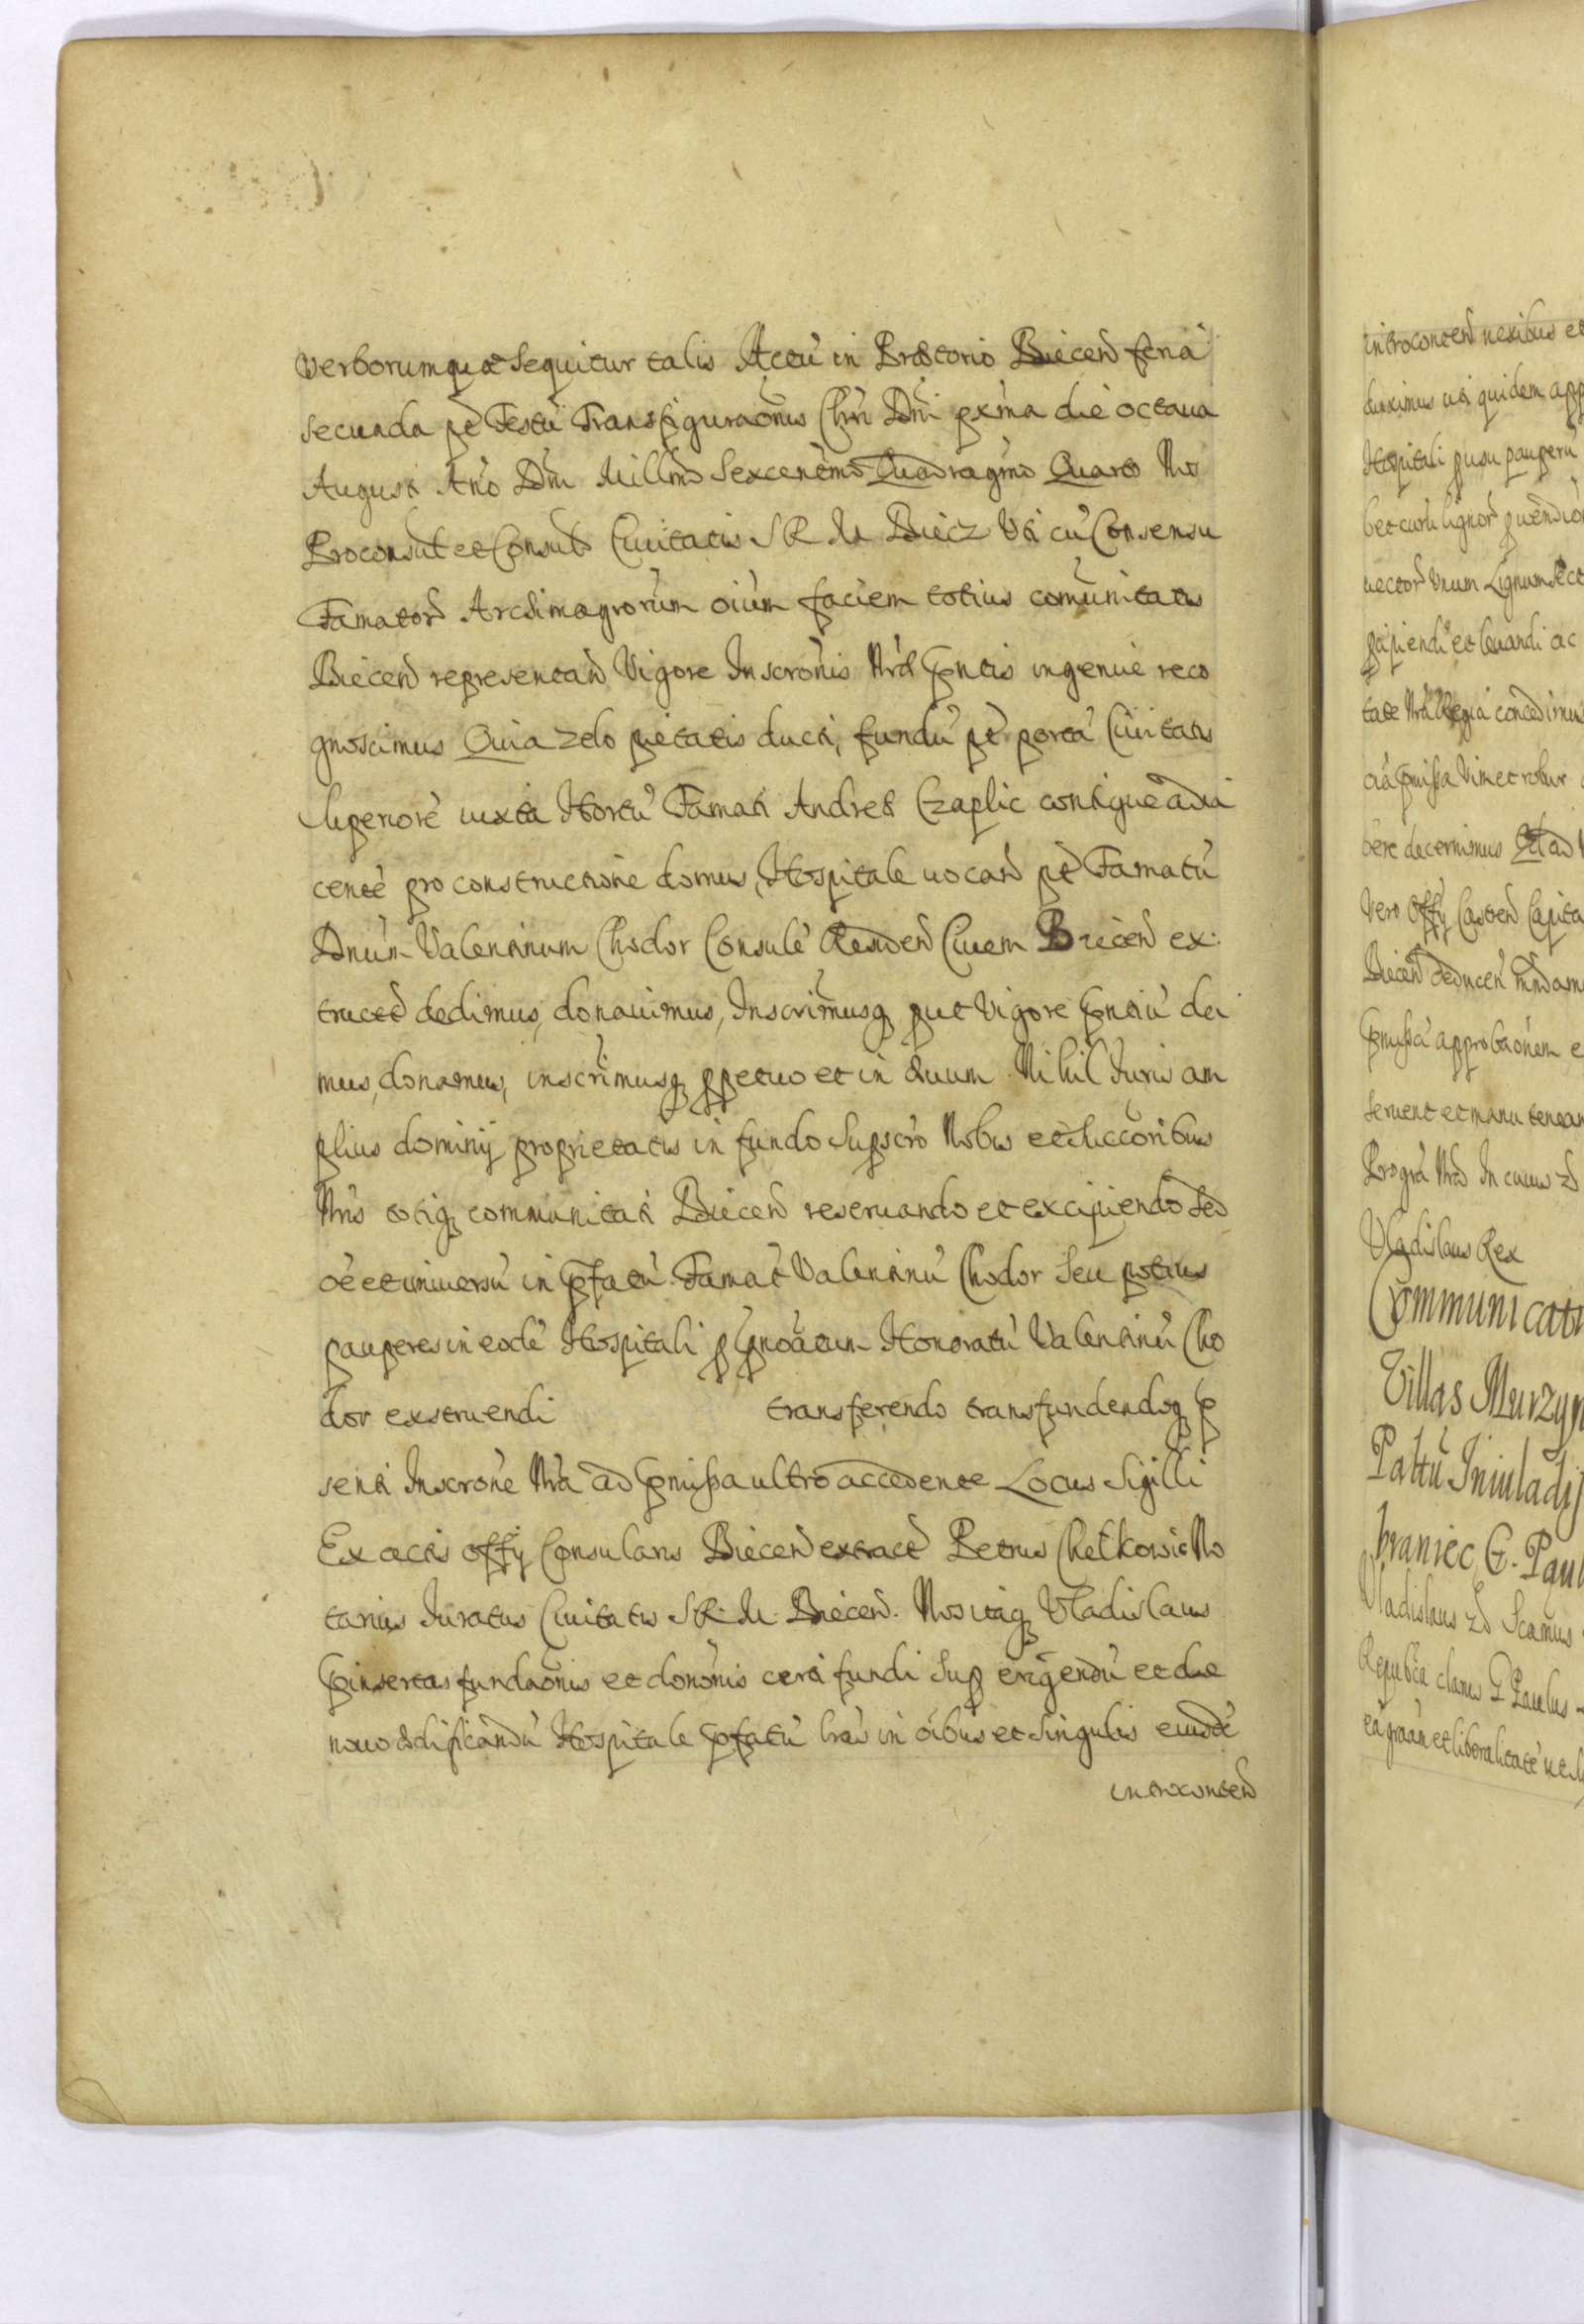 verborumquae sequitur talis Actũ in Praetorio Biecen feria
secunda pt Festũ Transfiguraonis Chri Dni pxima die octaua
Augusti Ano Dni Millmo Sexcentemo Quadragmo Quarto Nos
Proconsul et Consules Ciuitatis S R M Biecz Uti cũ Consensu
Famator Archimagrorum oium faciem totius comunitatis
Biecen representan Vigore Inscronis Nrae pntis ingenue reco
gnoscimus Quia zelo pietatis ducti, fundũ pt portã Ciuitatis
Superiorẽ iuxta Hortũ Famati Andreae Czaplic contigue adia
centẽ pro constructione domus, Hospitale uocan pt Famatũ
Dnum Valentinum Chodor Consulẽ Residen Ciuem Biecen ex:
truct dedimus, donauimus, Inscrimusq put Vigore pntiũ da
mus, donamus, inscrimusq ppetuo et in aeuum Nihil Iuris am
plius dominij proprietatis in fundo supscro Nobis et succoribus
Nris totiq communitati Biecen reseruando et excipiendo Sed
oẽ et uniuersũ in pfatũ Famat Valentinũ Chodor seu potius
pauperes in eodẽ Hospitali p pnoatum Honoratũ Valentinũ Cho
dor exstruendi transferendo transfundendoq p
senti Inscrone Nra ad pmissa ultro accedente Locus Sigilli
Ex actis offy Consularis Biecen extract Petrus Chełkowic No
tarius Iuratus Ciuitatis S R M Biecen. Nos itaq Vladislaus
pinsertas fundaonis et dononis certi fundi sup erigendũ et de
nouo aedificandũ Hospitale pfatũ lras in oibus et singulis eiusdẽ
introconten
introconten nexibus et
duximus uti quidem app
Hospitali p usu pauperũ
uector Vnum Lignum
pcipiendi et leuandi ac
tate Nra Regia concedimus
oia pmissa Vim et robur
bere decernimus
Vero offy Castren Capita
Biecen
pmissa approbaonem e
seruent et manu tenean
Vladislaus Rex
Communicat
Villas Murzyn
braniec G. Paul
Vladislaus
clarus G Paulus
et liberalitatẽ